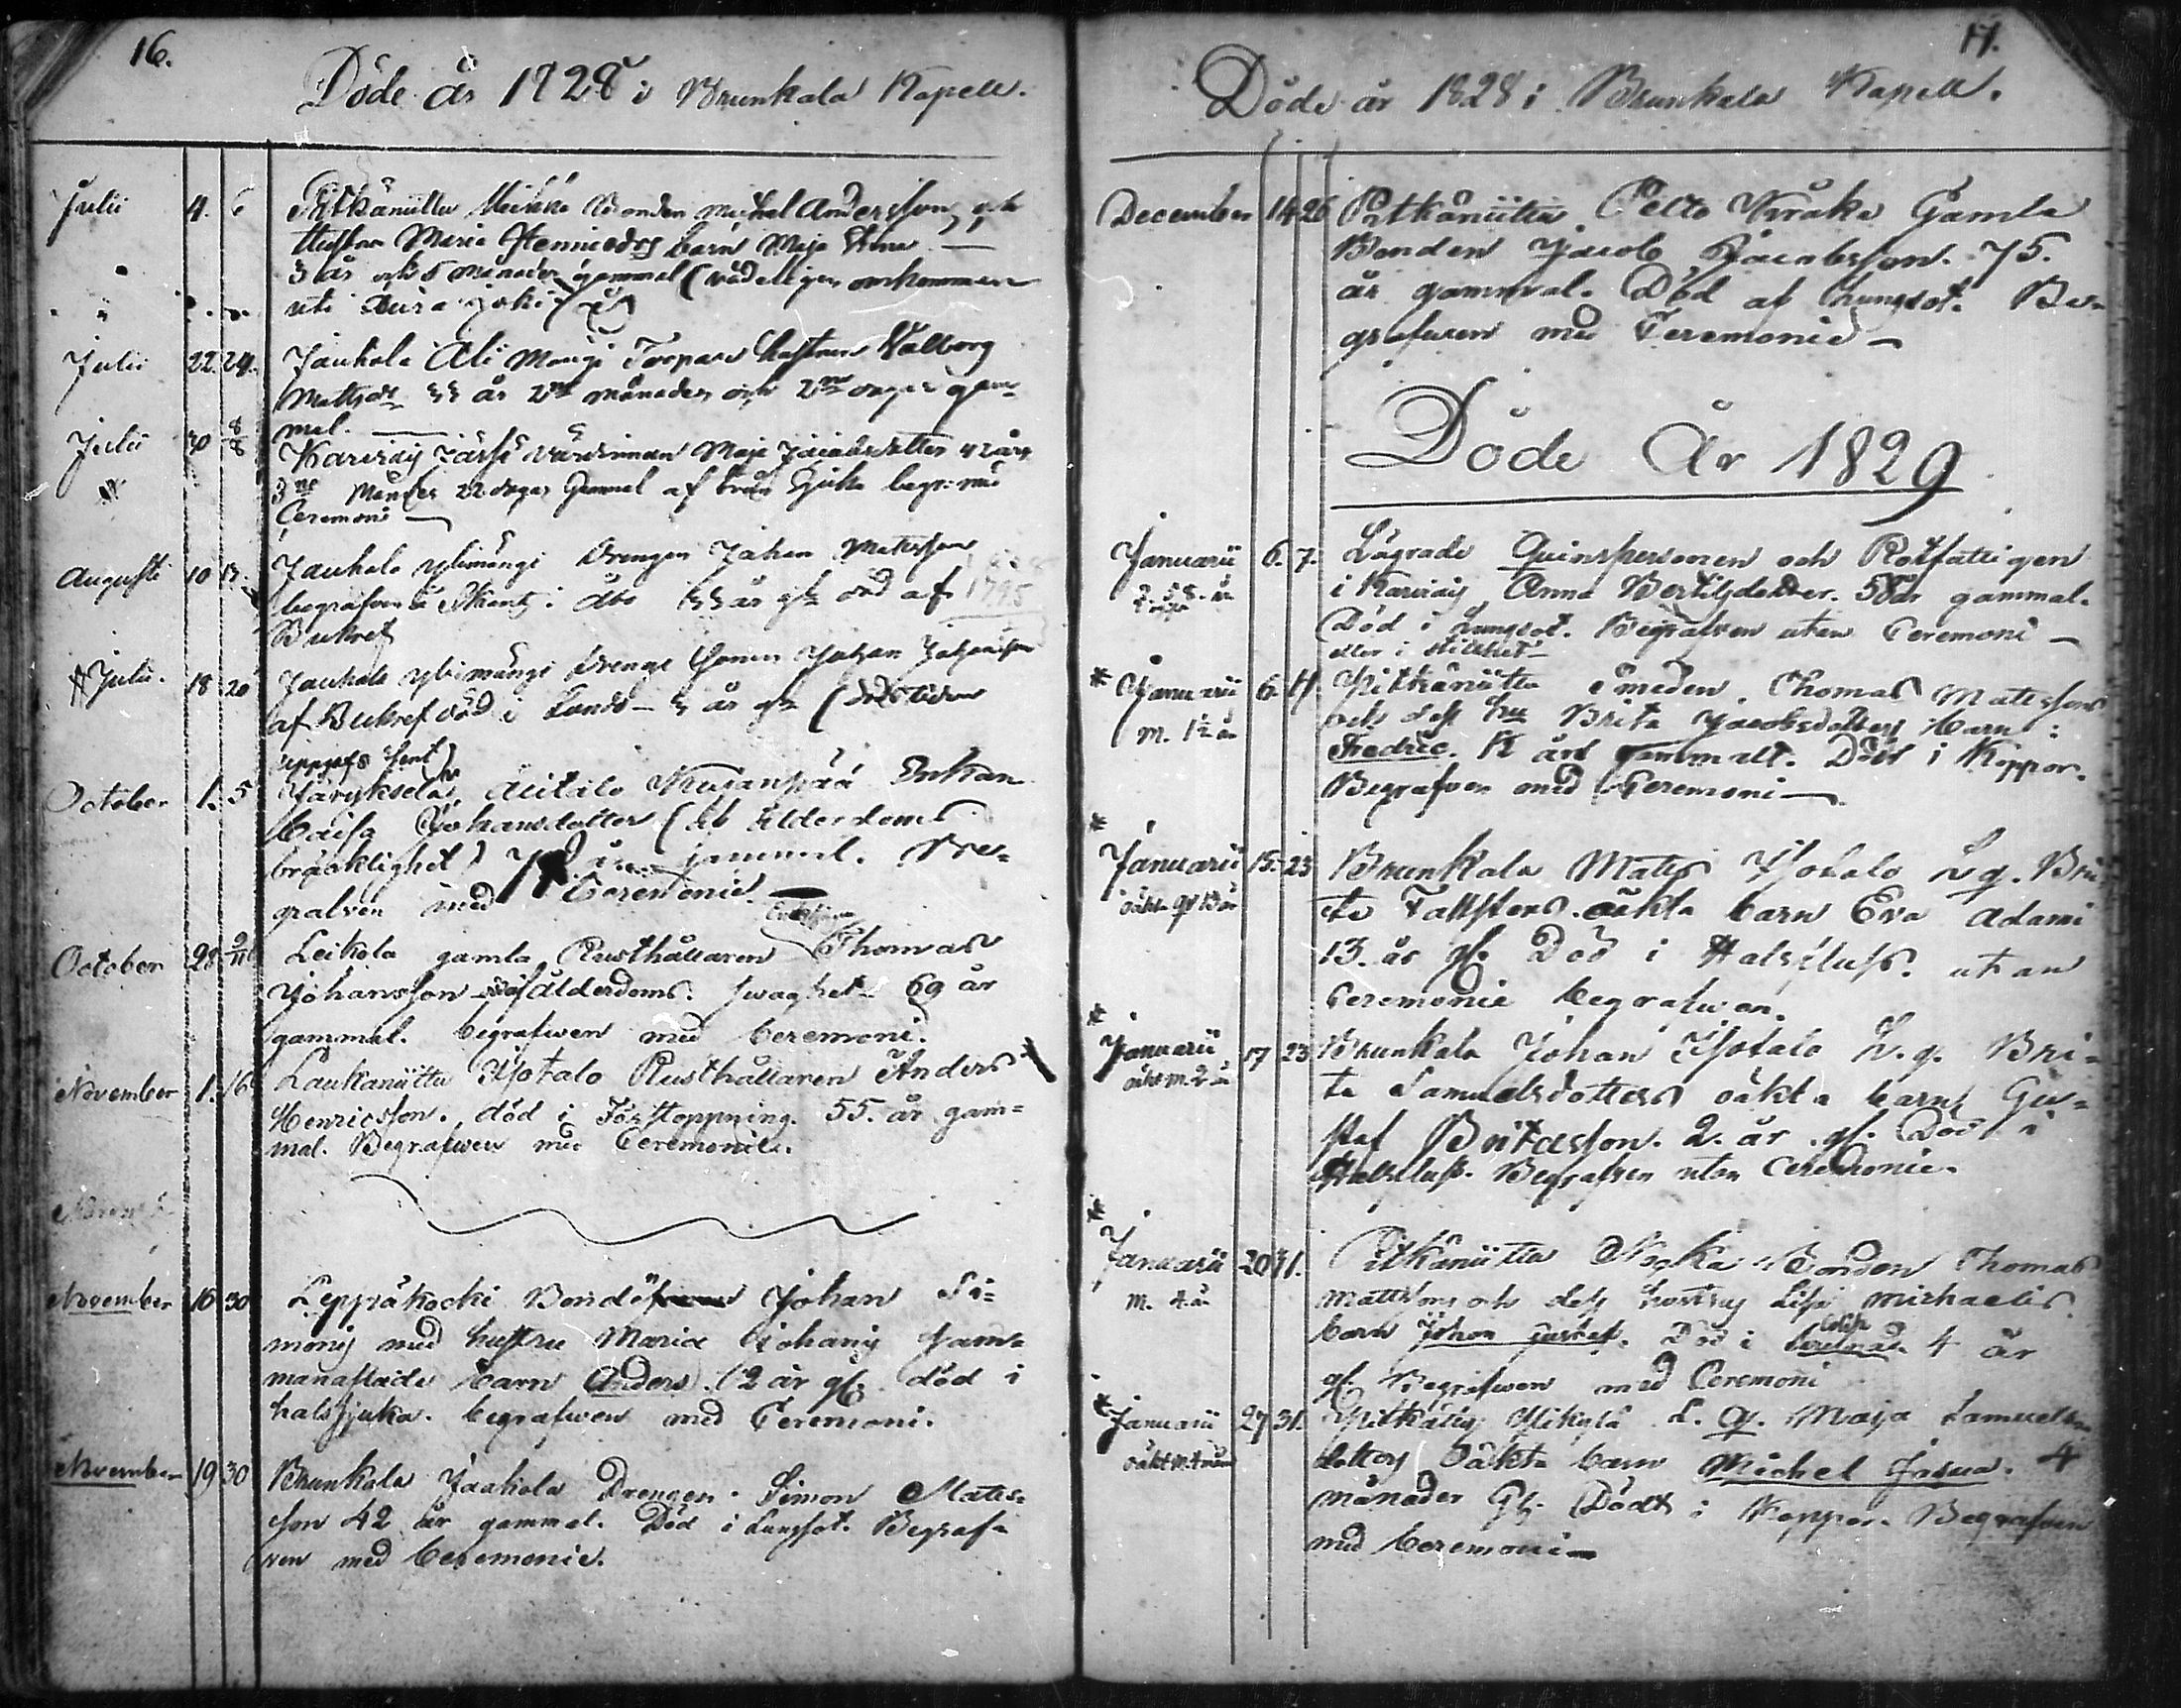 16.
Döde år 1828 i Brunkala Kapell.
Julii 4. 6 Pitkäniittu Mikkä Bonden Michel Andersson, och
Hustrun Maria Henricsdrs barn Maja Stina
3 år och 5 månader gammal (vådeligen omkommen
uti Aura joki å)
Julii 22. 24. Jauhola Ali Mängi Torpare hustrun Valborg
Mattsdr 55 år 2ne månader och 2ne dagar gam-
mal.
Julii 30 8/8 Karviais värdinnan Maja Jacobsdotter 42 år
3ne Månder 22 dagar Gammal af sjuka begr: med
Ceremoni
Augusti 10 Jauhola ylimängi Drengen Johan Matsson
begrafven å i Åbo 33 år gl: död af 1795
Bukref
Julii. 18 20 Jauhola ylimängi Drengs Sonen Johan Johansson
af Bukref död i Lundo 5 år gl: (Dödstiden
uppgifs sent)
October 1. 5 Järykselä, Äijtälo Kujanpää Enkan
Caisa Johansdotter (Ab Ålderdoms
bräcklighet) 78 år gammal. Be-
grafven med Ceremonie.
October 28 9/11 Leikola gamla Rusthållaren Enklingen Thomas
Johansson af ålderdoms swaghet 69 år
gammal. begrafwen med Ceremoni.
November 1. 16 Laukaniittu Isotalo Rusthållaren Anders
Henricsson. död i Förstoppning. 55. år gam-
mal. Begrafwen med Ceremonie.
November 16 30 Leppäkocki Bonde Johan Si-
monis med hustru Maria Johanis sam-
manaflade barn Anders. 12 år gl: död i
halssjuka. begrafwen med Ceremoni.
November 19 30 Brunkala Jaakola Drengen Simon Mats-
son 42 år gammal. Död i Lungsot. Begraf-
ven med Ceremonie.
17.
Döde år 1828 i Brunkala Kapell.
December 14 26 Pitkäniittu Pelto Kråka Gamla
Bonden Jacob Jacobsson. 75.
år gammal. Död af Lungsot. Be-
grafwen med Ceremonie
Döde År 1829
Januarii 6. 7. Lägrade Qvinspersonen och Rotfattigen
i Karviais Anna Bertilsdotter. 58 år gammal.
Död i Lungsot. Begrafven utan Ceremoni
eller i stillhet
* Januarii 6. 11 Pitkäniittu Smeden Thomas Matsson
M. 1½ år och dess hu Brita Jacobsdotters barn:
Fredric. 1½ års gammalt. Död i Koppor.
Begrafven med Ceremoni
*
Januarii 15. 25 Brunkala Matts Isotalo L. q. Bri-
oäkta q 13 år ta Fallstens oäkta barn Eva Adami
13. år gl. Död i Halsfluss. utan
Ceremonie begrafwen.
*
Januarii 17 25 Brunkala Johan Isotalo L. q. Bri-
oäkt. m. 2 år ta Samuelsdotters oäkta barn Gu-
staf Britasson. 2. år gl. Död i
Halsfluss. Begrafven utan Ceremonie.
*
Januarii 20 31. Pitkäniittu Nocka Bonden Thomas
M. 4 år Mattsson och dess hustrus Lisa Michaelis
barn Johan Gustaf. Död i 4 år
gl. Begrafwen med Ceremoni
* Januarii 27 31. L. q. Maja Samuels-
oäkt m. 4 mån dotters Oäkta barn Michel Josua. 4
månader Gl. Dödt i Koppor. Begrafven
med Ceremoni